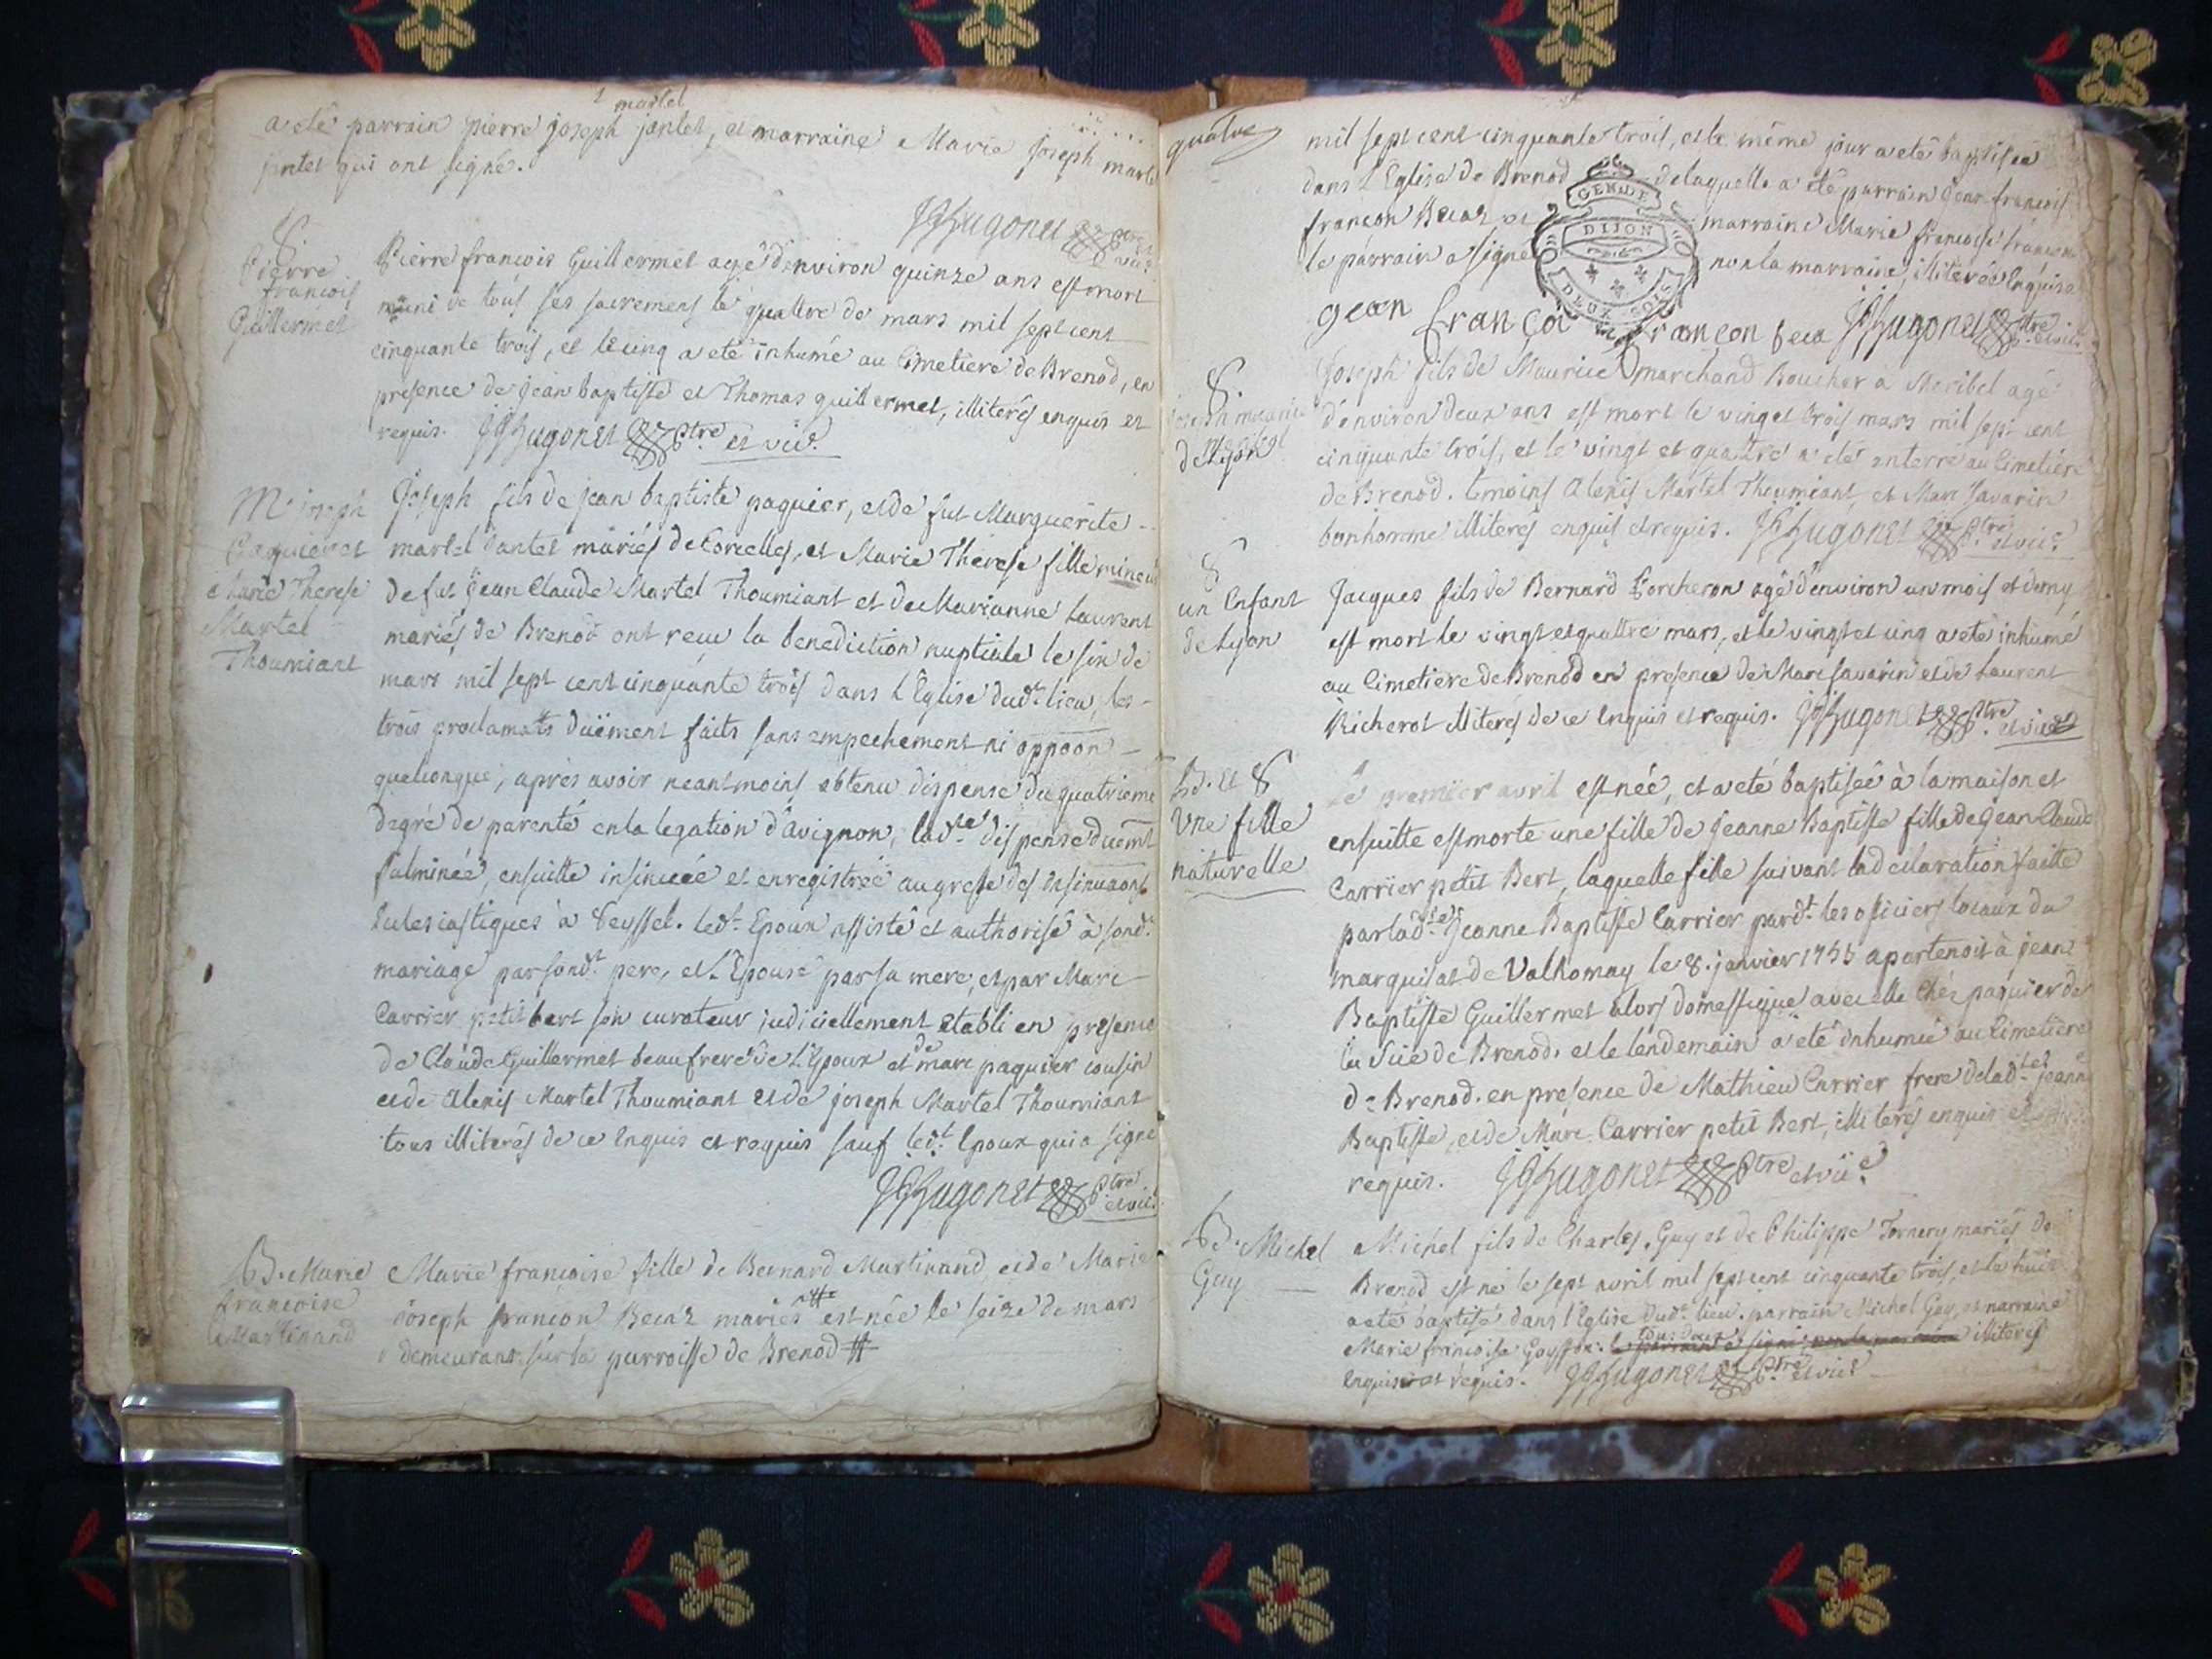 a eté parrain pierre joseph martel jantet, et marraine Marie Joseph martel
jantet qui ont signé.
JGHugonet Ptre et vic.
Pierre
francois
Guillermet
Pierre francois Guillermet agé d'environ quinze ans est mort
muni de tous ses sacremens le quattre de mars mil sept cent
cinquante trois, et le cinq a eté inhumé au Cimetiere de Brenod, en
presence de jean baptiste et Thomas guillermet, illiterés enquis et
requis. JGHugonet Ptre et vic.
M. joseph
Paquier et
Marie Therese
Martel
Thoumiant
Joseph fils de jean baptiste paquier, et de fut Marguerite
martel Jantet mariés de Corcelles, et Marie Therese fille mineure
de fut Jean Claude Martel Thoumiant et de Marianne Laurent
mariés de Brenod ont recu la benediction nuptiale le six de
mars mil sept cent cinquante trois dans l'Eglise dud.t lieu, les
trois proclamats düement faits sans empechement ni oppoõn
quelconque, après avoir neantmoins obtenu dispense du quatrieme
degré de parenté en la legation d'avignon, lad.te dispense duem̃t
fulminée, ensuitte insinuée et enregistrée au greffe des insinuaõns
Eclesiastiques a Seyssel. led.t Epoux assisté et authorisé à sond.t
mariage par sond.t pere, et l'Epouse par sa mere, et par Marc
Carrier petit bert son curateur judiciellement établi en presence
de Claude Guillermet beaufrere de l'Epoux et de marc paquier cousin
et de Alexis Martel Thoumiant et de joseph Martel Thoumiant
tous illiterés de ce Enquis et requis sauf led.t Epoux qui a signé
JGHugonet Ptre et vic.
B. Marie
francoise
Martinand
Marie francoise fille de Bernard Martinand, et de Marie
Joseph françon Becaz mariés # est née le seize de mars
demeurant sur la parroisse de Brenod #
quatre
mil sept cent cinquante trois, et le même jour a eté baptisée
dans l'Eglise de Brenod de laquelle a eté parrain Jean francois
françon Becaz et marraine Marie francoise françon
le parrain a signé non la marraine, illiterée Enquise
GEN.DE
DIJON
DEUX SOLS
gean françoi françon beca JGHugonet Ptre et vic.
Joseph maurice
de Lyon
Joseph fils de Maurice marchand Boucher a Meribel agé
d'environ deux ans est mort le vingt et trois mars mil sept cent
cinquante trois, et le vingt et quattre a eté enterré au Cimetiere
de Brenod. temoins Alexis Martel Thoumiant, et Marc Savarin
bonhomme illiterés enquis et requis. JGHugonet Ptre et vic.
un Enfant
de Lyon
Jacques fils de Bernard Forcheron agé d'environ un mois et demy
est mort le vingt et quattre mars, et le vingt et cinq a eté inhumé
au Cimetiere de Brenod en presence de Marc Savarin et de Laurent
Richerot illiterés de ce Enquis et requis. JGHugonet Ptre et vic
Bd. Et S
Une fille
naturelle
Le premier avril est née, et a eté baptisée à la maison et
ensuitte est morte une fille de Jeanne Baptiste fille de Jean Claude
Carrier petit Bert, laquelle fille suivant la declaration faitte
par lad.te Jeanne Baptiste Carrier pard.t les officiers locaux du
marquisat de Valhomay le 8. janvier 1753 apartenoit à jean
Baptiste Guillermet alors domestique avec elle chéz paquier de
la Scie de Brenod. et le lendemain a eté inhumée au Cimetiere
de Brenod. en presence de Mathieu Carrier frere de lad.te jeanne
Baptiste, et de Marc Carrier petit Bert, illiterés enquis et
requis. JGHugonet Ptre et vic.
Bd. Michel
Guy
Michel fils de Charles Guy et de Philippe Tornery mariés de
Brenod est né le sept avril mil sept cent cinquante trois, et le huit
a eté baptisé dans l'Eglise dud.t lieu. parrain Michel Guy, et marraine
Marie francoise Goyffon. tous deux illiterés
Enquis et requis. JGHugonet Ptre et vic.